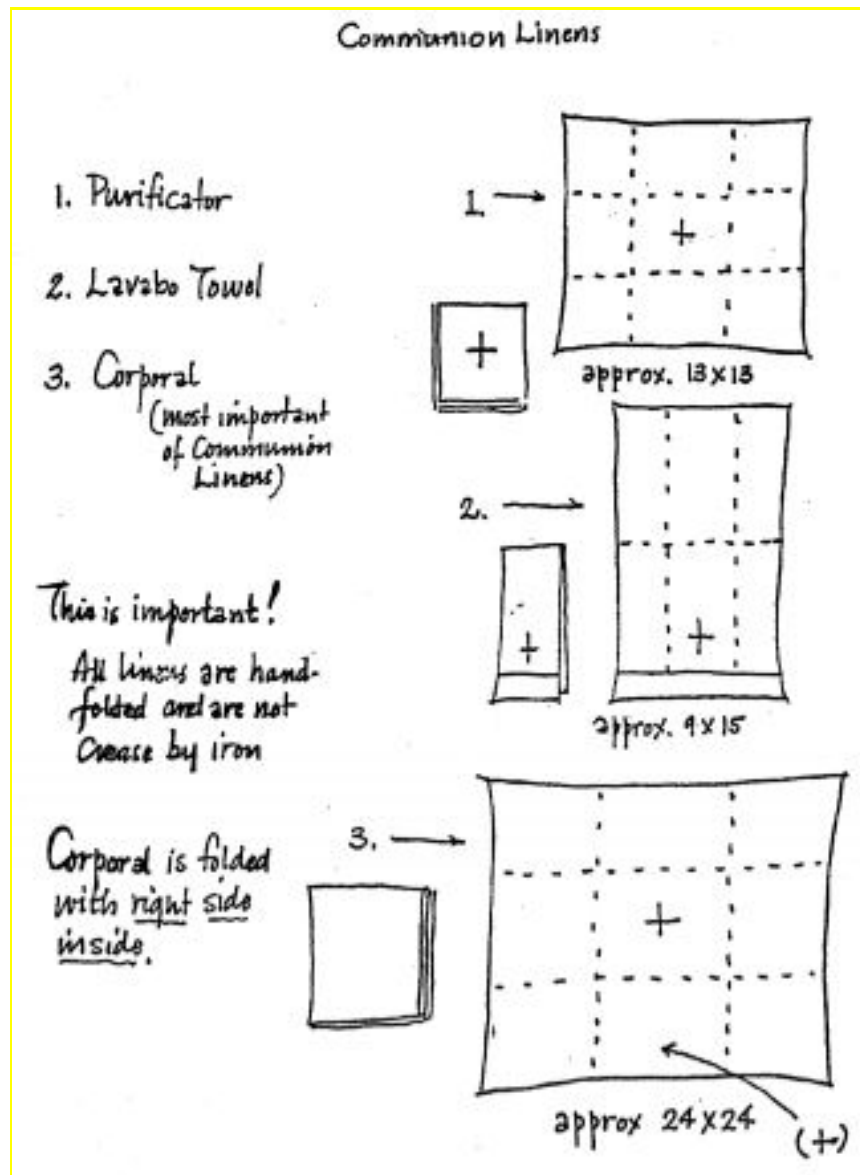 Communion Linens
1. Purificator
2. Lavabo Towel
3. Corporal
(most important
of Communion
Linens)
This is important!
All linens are hand-
folded and are not
crease by iron
Corporal is folded
with right side
inside.
1. →
+
+
approx. 13x13
2. →
+
+
approx. 9x15
3. →
+
approx 24x24
(+)